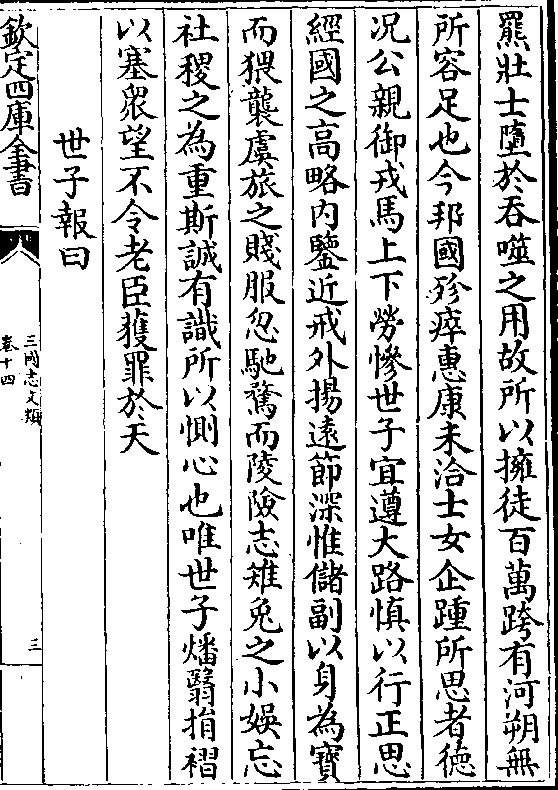 羆壯士墮於吞噬之用故所以擁徒百萬跨有河朔無
所容足也今邦國殄瘁惠康未洽士女企踵所思者徳
况公親御戎馬上下勞慘世子宜遵大路慎以行正思
經國之高略内鑒近戒外揚遠節深惟儲副以身為寳
而猥襲虞旅之賤服忽馳騖而陵險志雉兔之小娯忘
社稷之為重斯誠有識所以惻心也唯世子燔翳捐褶
以塞衆望不令老臣獲罪於天
世子報曰
欽定四庫全書
三國志文類
卷十四
三